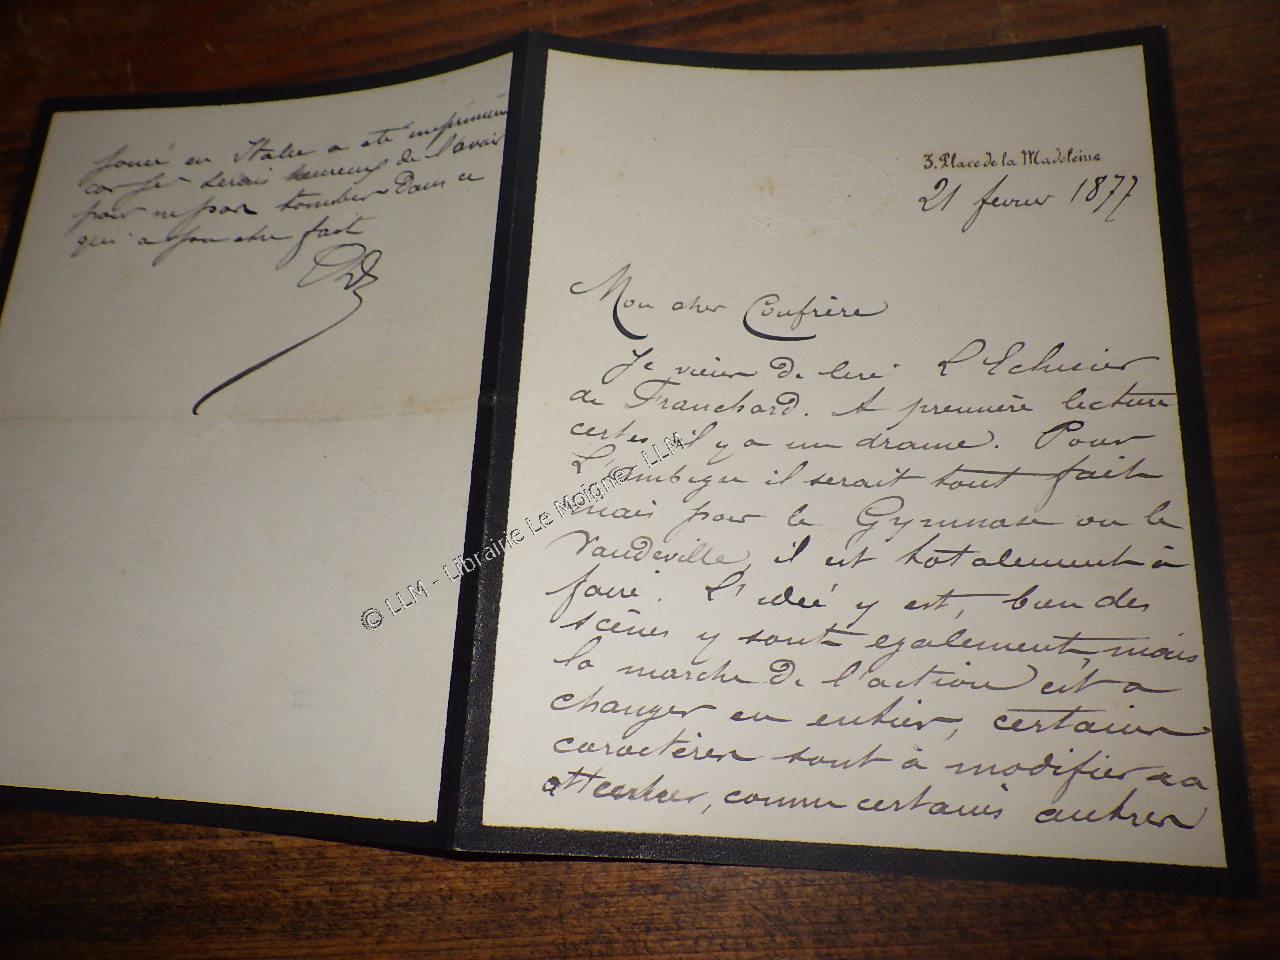 joué en Italie a été imprimée
car je serais heureux de l'avoir
pour ne pas tomber dans ce
qui a pu être fait
3. Place de la Madeleine
21 fevrier 1877
Mon cher Confrère
Je viens de lire L'Eclusier
de Franchard. A première lecture
certes, il y a un drame. Pour
L'Ambigu il serait tout fait
mais pour le Gymnase ou le
Vaudeville, il est totalement à
faire. L'idée y est, bien des
scènes y sont egalement, mais
la marche de l'action est a
changer en entier, certains
caractères sont à modifier
comme certains autres
© LLM - Librairie Le Moigne - LLM